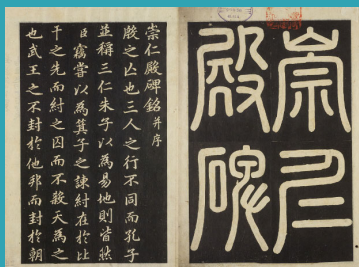 崇仁
殿碑
崇仁殿碑銘并序
殷之亡也三人之行不同而孔子
並稱三仁朱子以為易地則皆然
臣竊嘗以為箕子之諫紂在於比
干之先而紂之囚而不殺天為之
也武王之不封於他邦而封於朝